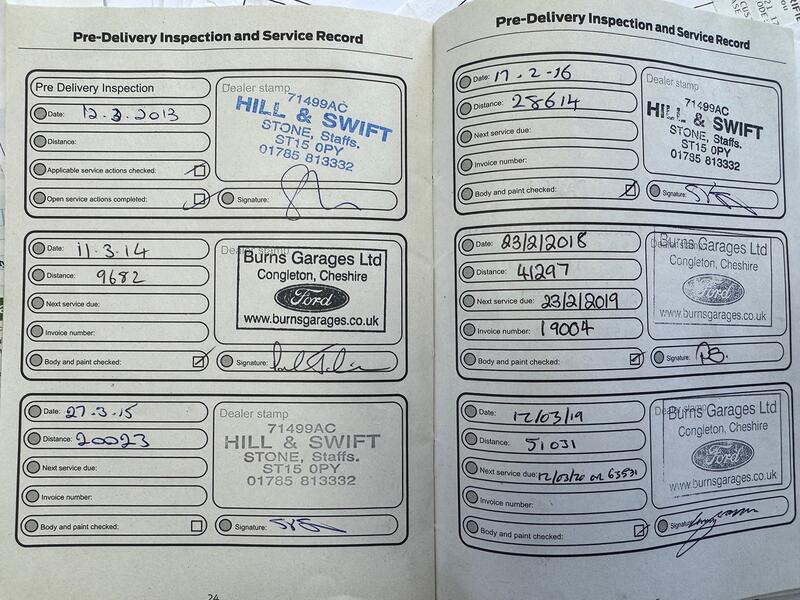 Pre-Delivery Inspection and Service Record
Pre Delivery Inspection
Date: 12.3.2013
Distance:
Applicable service actions checked:
Open service actions completed:
Dealer stamp
71499AC
HILL & SWIFT
STONE, Staffs.
ST15 0PY
01785 813332
Signature:
Date: 11.3.14
Distance: 9682
Next service due:
Invoice number:
Body and paint checked:
Dealer stamp
Burns Garages Ltd
Congleton, Cheshire
Ford
www.burnsgarages.co.uk
Signature:
Date: 27.3.15
Distance: 20023
Next service due:
Invoice number:
Body and paint checked:
Dealer stamp
71499AC
HILL & SWIFT
STONE, Staffs.
ST15 0PY
01785 813332
Signature:
24
Pre-Delivery Inspection and Service Record
Date: 17.2.16
Distance: 28614
Next service due:
Invoice number:
Body and paint checked:
Dealer stamp
71499AC
HILL & SWIFT
STONE, Staffs.
ST15 0PY
01785 813332
Signature:
Date: 23/2/2018
Distance: 41297
Next service due: 23/2/2019
Invoice number: 19004
Body and paint checked:
Dealer stamp
Burns Garages Ltd
Congleton, Cheshire
Ford
www.burnsgarages.co.uk
Signature:
Date: 12/03/19
Distance: 51031
Next service due: 12/03/20 or 63531
Invoice number:
Body and paint checked:
Dealer stamp
Burns Garages Ltd
Congleton, Cheshire
Ford
www.burnsgarages.co.uk
Signature: